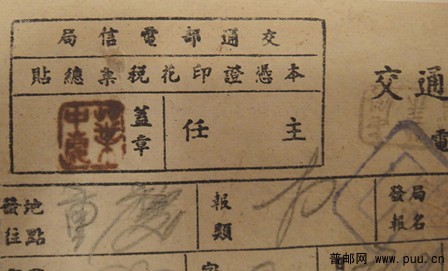 交通部電信局
本憑證印花税票總貼
主任
蓋章
交通
電
發報局名
報類
發往地點
重慶
普邮网 www.puu.cn